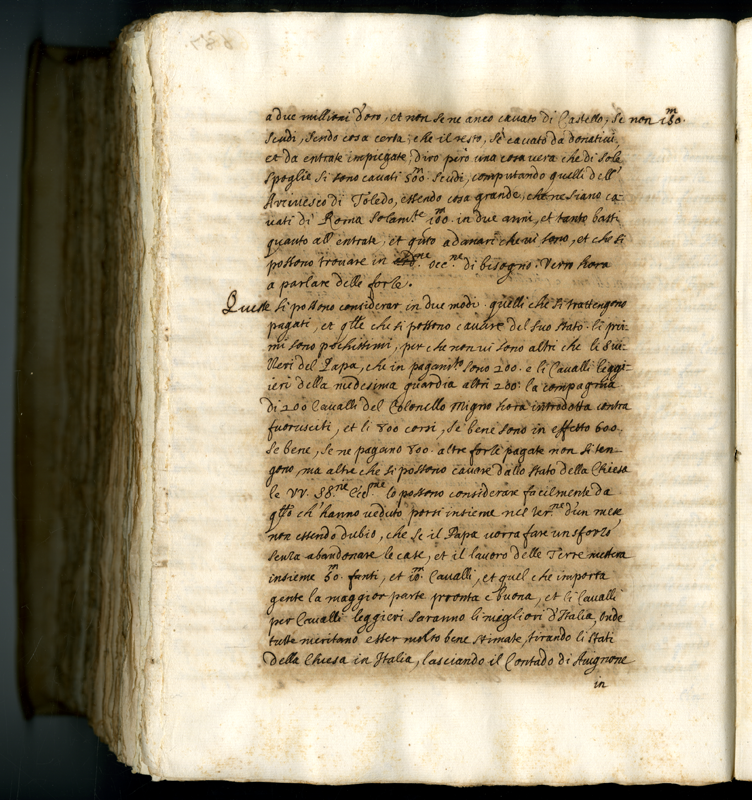 a due millioni d'oro, et non se ne anco cavato di Castello, se non 150.m
scudi, sendo cosa certa, che il resto, s'è cavato da donativi,
et da entrate impiegate, dirò però una cosa vera che di sole
spoglie si sono cavati 500.m scudi, computando quelli dell'
Arcivesco di Toledo, essendo cosa grande, che ne siano ca-
vati di Roma solam.te 100.m in due anni, et tanto basti
quanto all'entrate, et q.to a danari che vi sono, et che si
possono trovare in occ.ne di bisogno. Verrò hora
a parlare delle forze.
Queste si possono considerar in due modi. quelli che si trattengono
pagati, et q.lle che si possono cavare del suo stato. li pri-
mi sono pochissimi, per che non vi sono altri che le Sui-
zeri del Papa, che in pagam.to sono 200. e li Cavalli leggi-
ieri della medesima guardia altri 200. la compagnia
di 200 Cavalli del Colonello Migno hora introdotta contra
fuorusciti, et li 800 corsi, se bene sono in effetto 600.
se bene, se ne pagano 800. altre forze pagate non si ten-
gono, ma altre che si possono cavare dallo stato della Chiesa
le VV. SS.ne Ecc.me lo possono considerare facilmente da
q.llo ch'hanno veduto porsi insieme nel ter.ne d'un mese
non essendo dubio, che se il Papa vorrà fare un sforzo
senza abandonare le case, et il lavoro delle Terre metterà
insieme 60.m fanti, et 10.m Cavalli, et quel che importa
gente la maggior parte pronta e buona, et li Cavalli
per Cavalli leggieri saranno li megliori d'Italia, onde
tutte meritano esser molto bene stimate, tirando li stati
della Chiesa in Italia, lasciando il Contado di Avignone
in